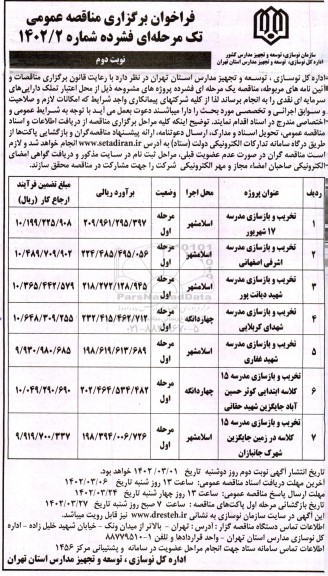 فراخوان برگزاری مناقصه عمومی
تک مرحله‌ای فشرده شماره ۱۴۰۲/۲
نوبت دوم
سازمان نوسازی، توسعه و تجهیز مدارس کشور
اداره کل نوسازی، توسعه و تجهیز مدارس استان تهران
اداره کل نوسازی، توسعه و تجهیز مدارس استان تهران در نظر دارد با رعایت قانون برگزاری مناقصات و
آئین نامه های مربوطه، مناقصه یک مرحله ای فشرده پروژه های مشروحه ذیل از محل اعتبار تملک دارایی‌های
سرمایه ای نقدی را به انجام برساند لذا از کلیه شرکتهای پیمانکاری واجد شرایط که امکانات لازم و صلاحیت
و سوابق اجرائی و تخصصی مورد بحث را دارا میباشند دعوت بعمل می آید با توجه به شرایط عمومی و
اختصاصی مندرج در اسناد اقدام نمایند. توضیح اینکه کلیه مراحل برگزاری مناقصه از دریافت اطلاعات و اسناد
مناقصه عمومی، تحویل اسناد و مدارک، ارسال دعوتنامه، ارائه پیشنهاد مناقصه‌گران و بازگشایی پاکت‌ها از
طریق درگاه سامانه تدارکات الکترونیکی دولت (ستاد) به آدرس www.setadiran.ir انجام خواهد شد و لازم
است مناقصه گران در صورت عدم عضویت قبلی، مراحل ثبت نام در سایت مذکور و دریافت گواهی امضای
الکترونیکی صاحبان امضاء مجاز و مهر الکترونیکی شرکت را جهت مشارکت در مناقصه محقق سازند.
ردیف عنوان پروژه محل اجرا وضعیت برآورد ریالی مبلغ تضمین فرآیند ارجاع کار (ریال)
۱ تخریب و بازسازی مدرسه ۱۷ شهریور اسلامشهر مرحله اول ۲۰۹/۹۶۱/۲۹۵/۳۹۷ ۱۰/۱۹۹/۲۲۵/۹۰۸
۲ تخریب و بازسازی مدرسه اشرفی اصفهانی اسلامشهر مرحله اول ۲۲۴/۴۸۵/۴۹۵/۰۵۶ ۱۰/۴۸۹/۷۰۹/۹۰۲
۳ تخریب و بازسازی مدرسه شهید دیانت پور اسلامشهر مرحله اول ۲۱۸/۲۷۲/۱۲۸/۹۴۵ ۱۰/۳۶۵/۴۴۲/۵۷۹
۴ تخریب و بازسازی مدرسه شهدای کربلایی چهاردانگه مرحله اول ۲۳۲/۴۱۵/۴۶۲/۷۱۲ ۱۰/۶۴۸/۳۰۹/۲۵۵
۵ تخریب و بازسازی مدرسه شهید غفاری اسلامشهر مرحله اول ۱۹۸/۶۱۹/۶۱۳/۶۸۹ ۹/۹۳۰/۹۸۰/۶۸۵
۶ تخریب و بازسازی مدرسه ۱۵ کلاسه ابتدایی کوثر حسین آباد جایگزین شهید حقانی چهاردانگه مرحله اول ۲۰۲/۴۶۴/۵۳۴/۴۸۲ ۱۰/۰۴۹/۲۹۰/۶۹۰
۷ تخریب و بازسازی مدرسه ۱۵ کلاسه در زمین جایگزین شهرک جانبازان اسلامشهر مرحله اول ۱۹۸/۳۹۴/۰۰۶/۷۲۶ ۹/۹۱۹/۷۰۰/۳۳۷
تاریخ انتشار آگهی نوبت دوم روز دوشنبه تاریخ ۱۴۰۲/۰۳/۰۱ خواهد بود.
آخرین مهلت دریافت اسناد مناقصه عمومی: ساعت ۱۳ روز شنبه تاریخ ۱۴۰۲/۰۳/۰۶
مهلت ارسال پاسخ مناقصه عمومی: ساعت ۱۳ روز چهار شنبه تاریخ ۱۴۰۲/۰۳/۲۴
تاریخ بازگشائی مرحله اول پاکت‌های مناقصه : ساعت ۷ صبح روز شنبه تاریخ ۱۴۰۲/۰۳/۲۷
این آگهی در سایت سازمان نوسازی به نشانی www.dresteh.ir نیز قابل رویت میباشد.
اطلاعات تماس دستگاه مناقصه گزار : آدرس : تهران - بالاتر از میدان ونک - خیابان شهید خلیل زاده - اداره
کل نوسازی مدارس استان تهران - واحد قراردادها و تلفن ۱۰-۸۸۷۷۹۵۱
اطلاعات تماس سامانه ستاد جهت انجام مراحل عضویت در سامانه و پشتیبانی مرکز ۱۴۵۶
اداره کل نوسازی ، توسعه و تجهیز مدارس استان تهران